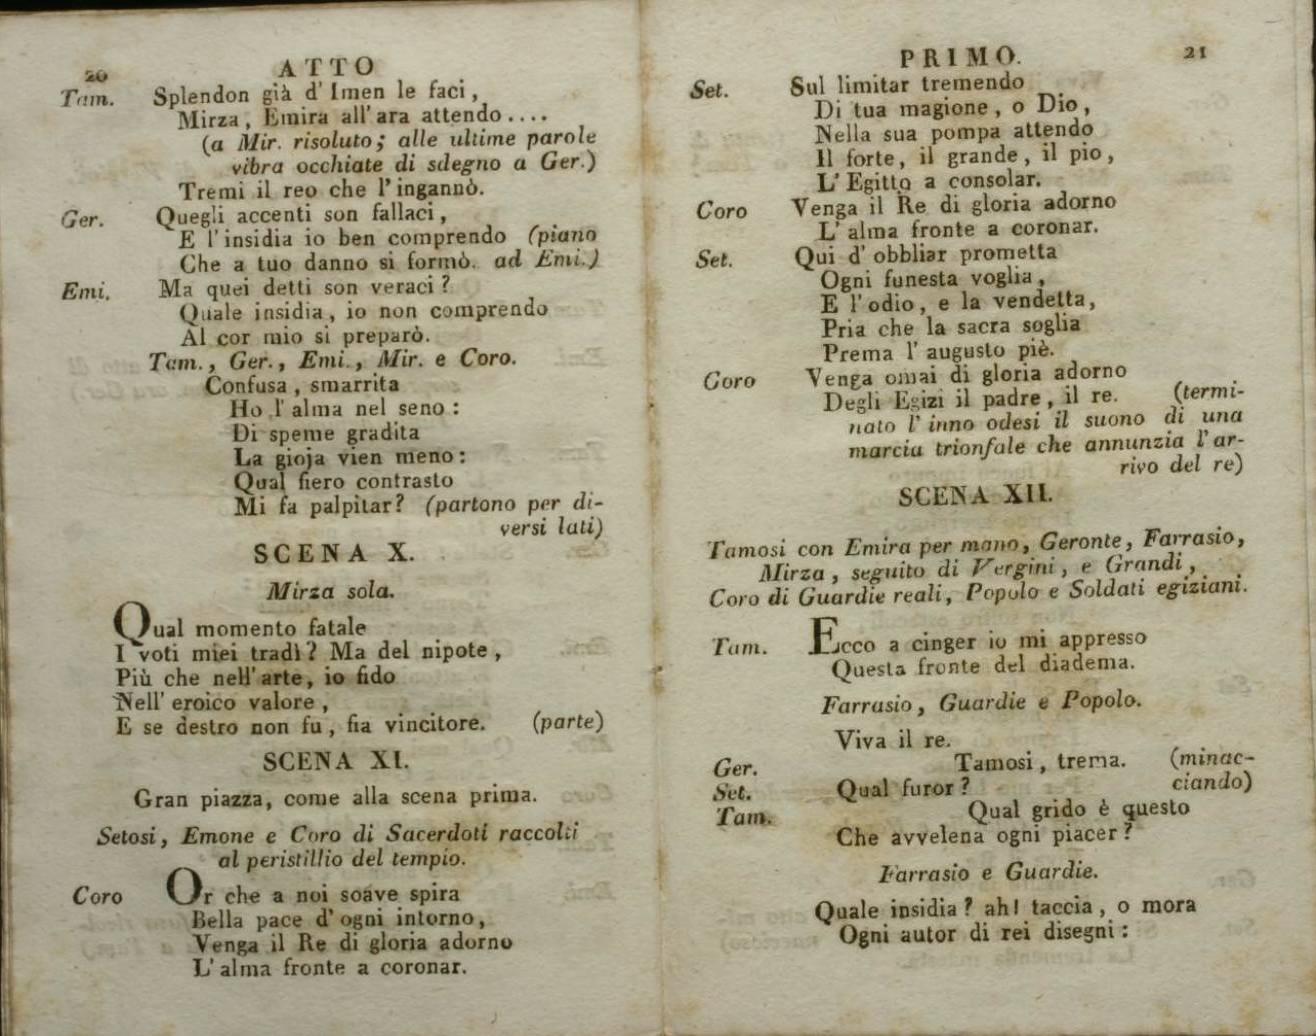 20
ATTO
Tam. Splendon già d' Imen le faci,
Mirza, Emira all' ara attendo....
(a Mir. risoluto; alle ultime parole
vibra occhiate di sdegno a Ger.)
Tremi il reo che l' ingannò.
Ger. Quegli accenti son fallaci,
E l' insidia io ben comprendo (piano
Che a tuo danno si formò. ad Emi.)
Emi. Ma quei detti son veraci?
Quale insidia, io non comprendo
Al cor mio si preparò.
Tam., Ger., Emi., Mir. e Coro.
Confusa, smarrita
Ho l' alma nel seno:
Di speme gradita
La gioja vien meno:
Qual fiero contrasto
Mi fa palpitar? (partono per di-
versi lati)
SCENA X.
Mirza sola.
Qual momento fatale
I voti miei tradì? Ma del nipote,
Più che nell' arte, io fido
Nell' eroico valore,
E se destro non fu, fia vincitore. (parte)
SCENA XI.
Gran piazza, come alla scena prima.
Setosi, Emone e Coro di Sacerdoti raccolti
al peristillio del tempio.
Coro Or che a noi soave spira
Bella pace d' ogni intorno,
Venga il Re di gloria adorno
L' alma fronte a coronar.
PRIMO.
21
Set. Sul limitar tremendo
Di tua magione, o Dio,
Nella sua pompa attendo
Il forte, il grande, il pio,
L' Egitto a consolar.
Coro Venga il Re di gloria adorno
L' alma fronte a coronar.
Set. Qui d' obbliar prometta
Ogni funesta voglia,
E l' odio, e la vendetta,
Pria che la sacra soglia
Prema l' augusto piè.
Coro Venga omai di gloria adorno
Degli Egizi il padre, il re. (termi-
nato l' inno odesi il suono di una
marcia trionfale che annunzia l' ar-
rivo del re)
SCENA XII.
Tamosi con Emira per mano, Geronte, Farrasio,
Mirza, seguito di Vergini, e Grandi,
Coro di Guardie reali, Popolo e Soldati egiziani.
Tam. Ecco a cinger io mi appresso
Questa fronte del diadema.
Farrasio, Guardie e Popolo.
Viva il re.
Ger. Tamosi, trema. (minac-
Set. Qual furor? ciando)
Tam. Qual grido è questo
Che avvelena ogni piacer?
Farrasio e Guardie.
Quale insidia? ah! taccia, o mora
Ogni autor di rei disegni: